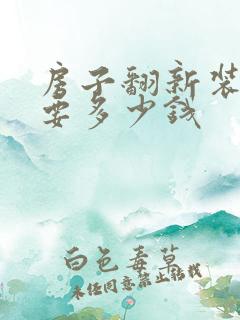 房子翻新装
要多少钱
白色毒草
未经同意禁止转载